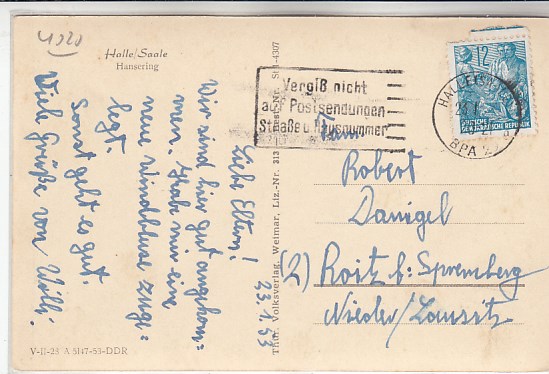 4020
Halle/Saale
Hansering
23.1.53
Liebe Eltern!
Wir sind hier gut angekom=
men. Habe mir eine
neue Windbluse zuge=
legt.
Sonst geht es gut.
Viele Grüße von Willi.
V-II-25 A 5147-53-DDR
Thür. Volksverlag, Weimar, Liz.-Nr. 313
Best.-Nr. St
4307
Vergiß nicht
auf Postsendungen
Straße u Hausnummer
HALLE
BPA 2
12
DEUTSCHE
DEMOKRATISCHE REPUBLIK
Robert
Danigel
(2) Roitz b. Spremberg
Nieder/Lausitz